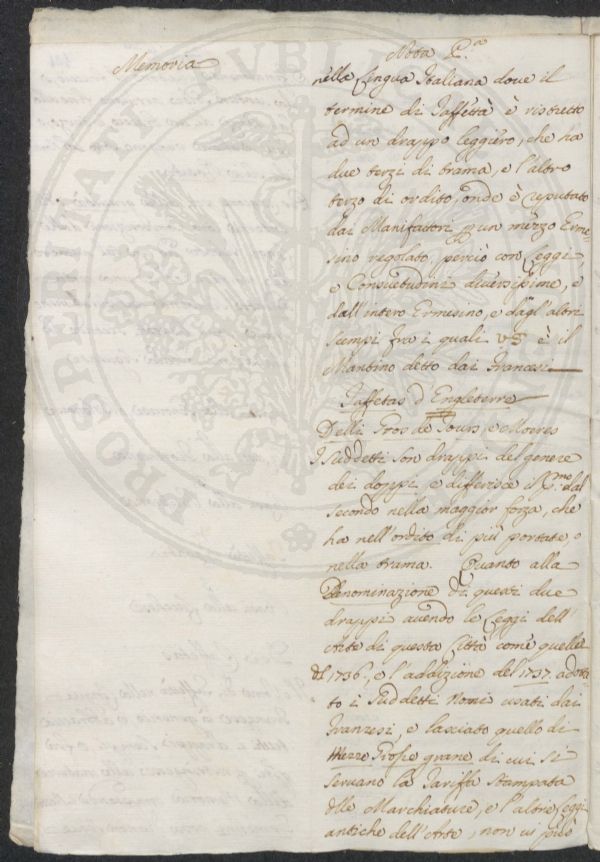 Memoria
Nota P.ª
nella Lingua Italiana dove il
termine di Taffettà è ristretto
ad un drappo leggiero, che ha
due terzi di trama, e l'altro
terzo di ordito, onde è reputato
dai Manifattori un mezzo Erme=
sino regolato perciò con Leggi
e Consuetudini diversissime, e
dall'intero Ermesino, e dagl'altri
sempi fra i quali vè è il
Mantino detto dai Francesi
Taffetas d'Engleterre
Delli Gros de Tours, e Moeres
I Suddetti son drappi del genere
dei doppi, e differisce il P.mo dal
secondo nella maggior forza, che
ha nell'ordito di più portate, o
nella trama. Quanto alla
Denominazione di questi due
drappi avendo le Leggi dell'
Arte di questa Città come quella
del 1736, e l'addizione del 1737 adotta
to i Suddetti Nomi usati dai
Franzesi, e lasciato quello di
Mezze Grosse grane di cui si
servano la Tariffa stampata
delle Marchiature, e l'altre Leggi
antiche dell'Arte, non vi può
PROSPERITATI PUBLICAE